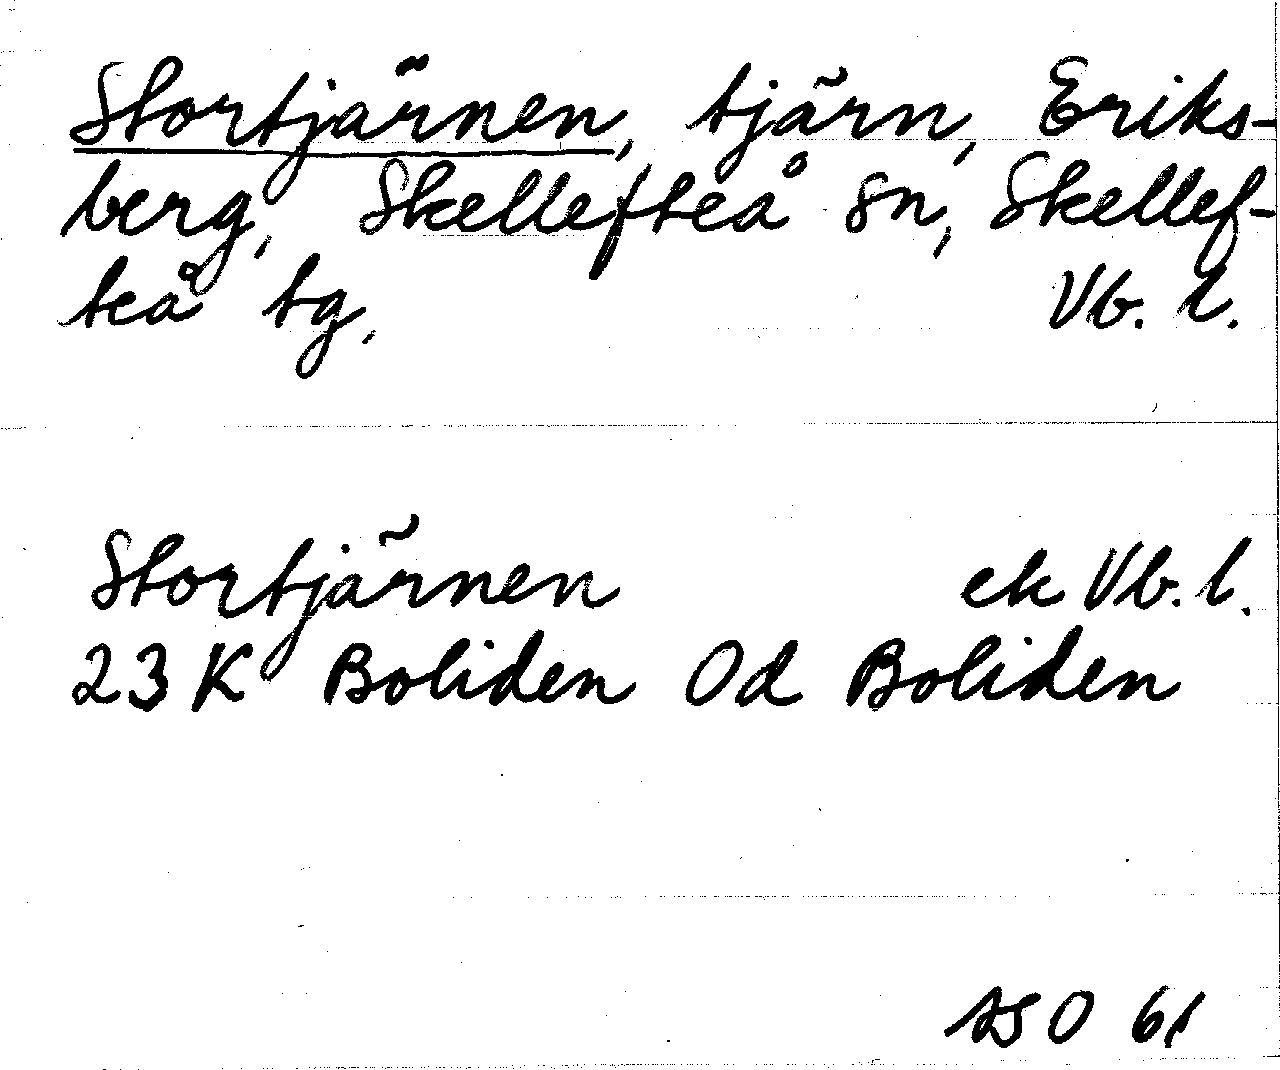 Stortjärnen, tjärn, Eriks-
berg, Skellefteå sn, Skellef-
teå tg. Vb. l.
Stortjärnen ek Vb. l.
23 K Boliden Od Boliden
ASO 61